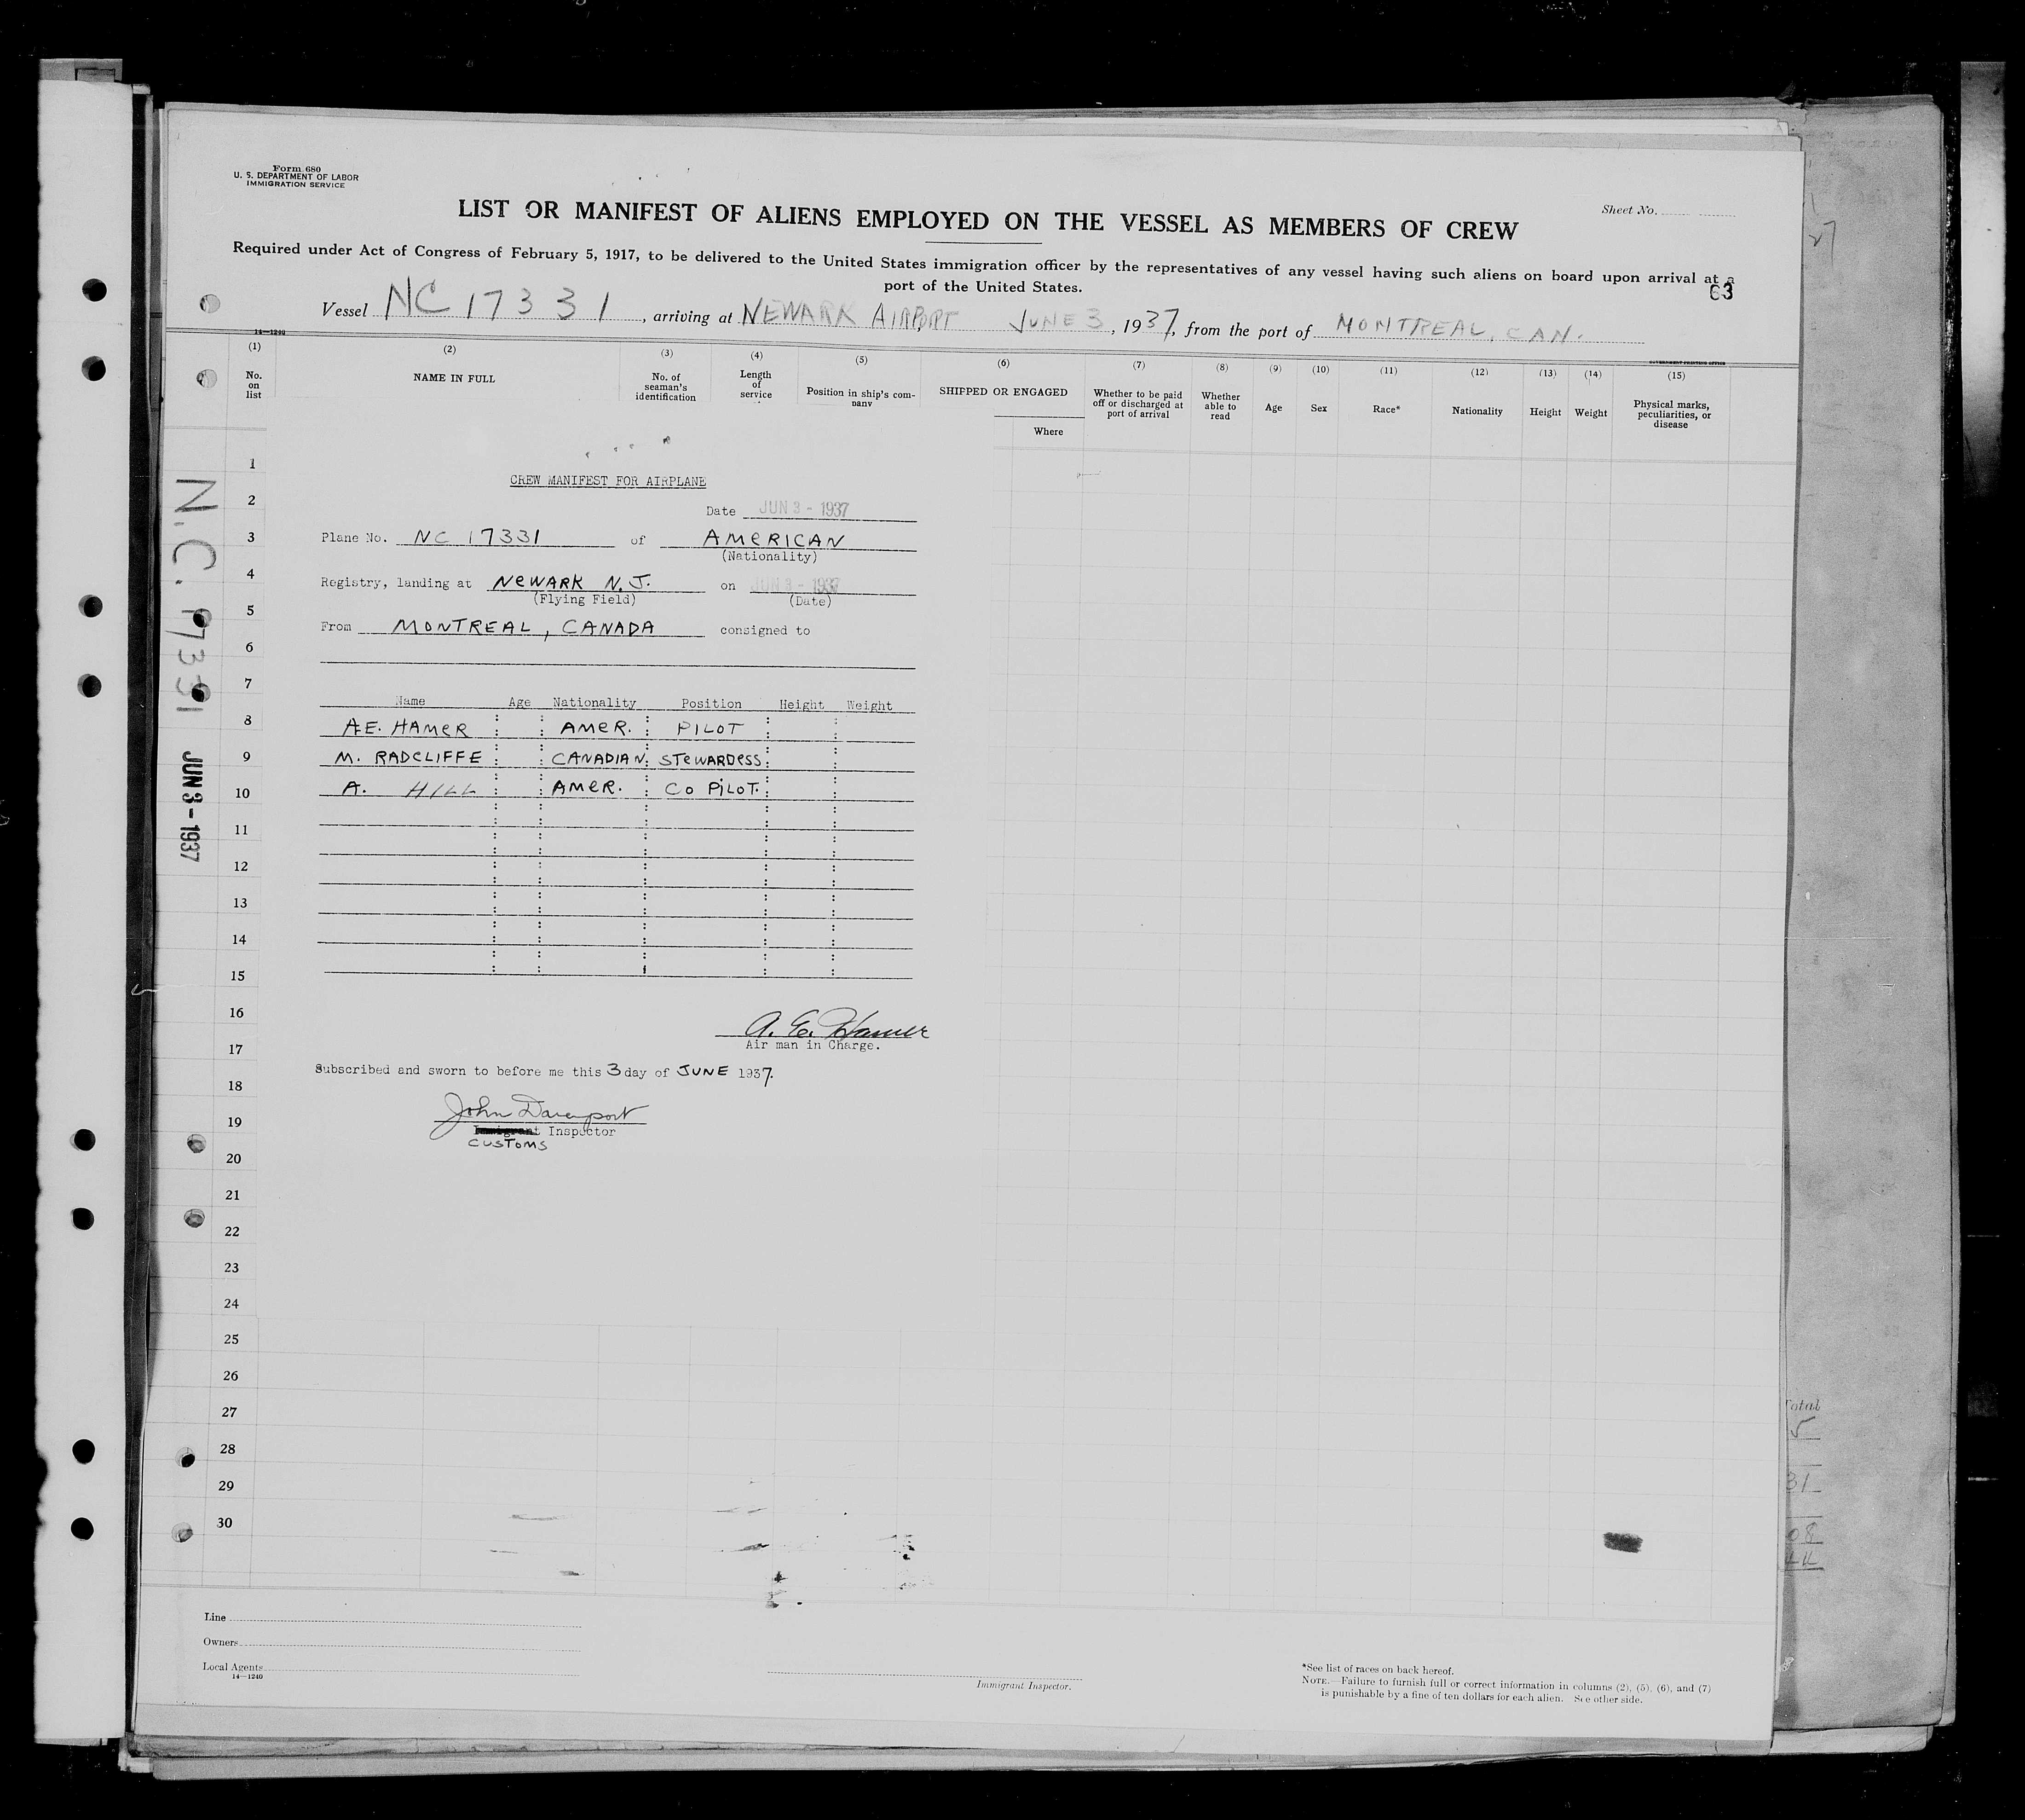 Form 680
U. S. DEPARTMENT OF LABOR
IMMIGRATION SERVICE
Sheet No.
LIST OR MANIFEST OF ALIENS EMPLOYED ON THE VESSEL AS MEMBERS OF CREW
Required under Act of Congress of February 5, 1917, to be delivered to the United States immigration officer by the representatives of any vessel having such aliens on board upon arrival at a
port of the United States.
63
Vessel NC 17331, arriving at NEWARK AIRPORT JUNE 3, 1937, from the port of MONTREAL, CAN.
14—1240
GOVERNMENT PRINTING OFFICE
(1) (2) (3) (4) (5) (6) (7) (8) (9) (10) (11) (12) (13) (14) (15)
No. on list
NAME IN FULL
No. of seaman's identification
Length of service
Position in ship's company
SHIPPED OR ENGAGED
Where
Whether to be paid off or discharged at port of arrival
Whether able to read
Age
Sex
Race*
Nationality
Height
Weight
Physical marks, peculiarities, or disease
1
2
3
4
5
6
7
8
9
10
11
12
13
14
15
16
17
18
19
20
21
22
23
24
25
26
27
28
29
30
N.C. 17331
JUN 3 - 1937
CREW MANIFEST FOR AIRPLANE
Date JUN 3 - 1937
Plane No. NC 17331 of AMERICAN
(Nationality)
Registry, landing at NEWARK N.J. on JUN 3 - 1937
(Flying Field) (Date)
From MONTREAL, CANADA consigned to
Name Age Nationality Position Height Weight
A.E. HAMER AMER. PILOT
M. RADCLIFFE CANADIAN STEWARDESS
A. HILL AMER. CO PILOT.
A. E. Hamer
Air man in Charge.
Subscribed and sworn to before me this 3 day of JUNE 1937.
John Davenport
Immigrant Inspector
CUSTOMS
Line
Owners
Local Agents
14—1240
Immigrant Inspector.
*See list of races on back hereof.
NOTE.—Failure to furnish full or correct information in columns (2), (5), (6), and (7)
is punishable by a fine of ten dollars for each alien. See other side.
Total
5
31
08